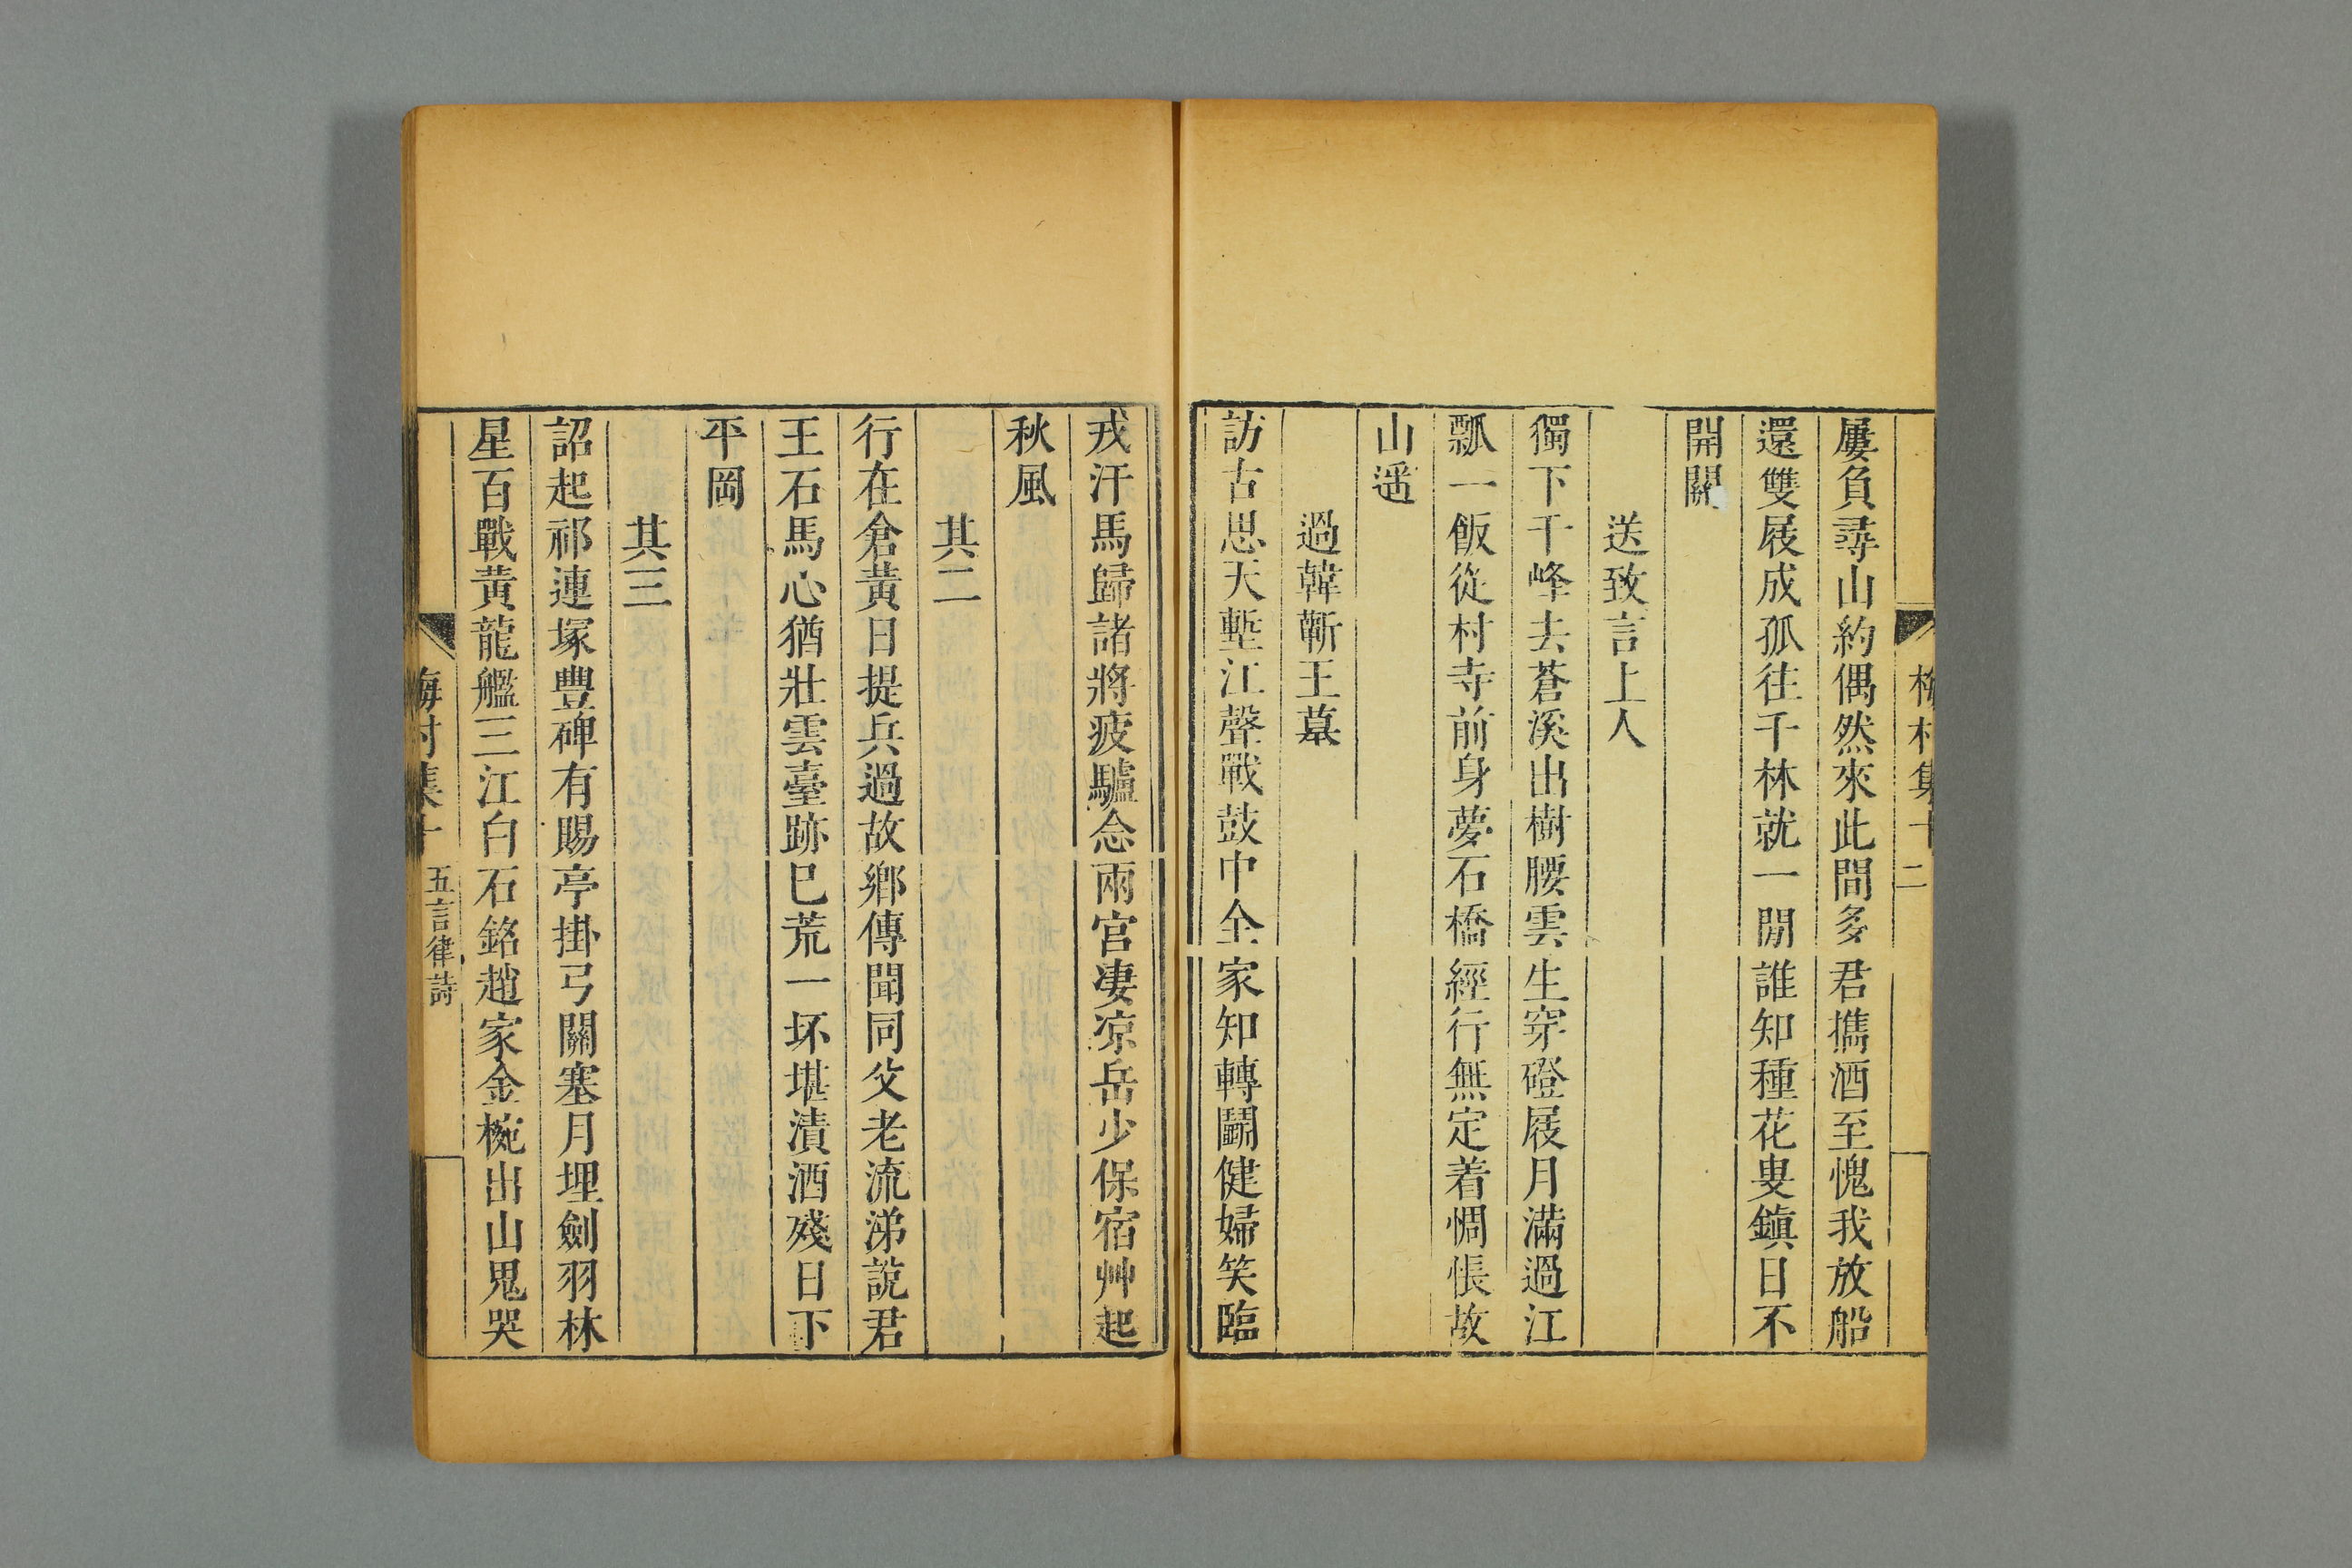 梅村集十二
屢負尋山約偶然來此間多君攜酒至愧我放船
還雙屐成孤往千林就一閒誰知種花叟鎮日不
開關
送致言上人
獨下千峰去蒼溪出樹腰雲生穿磴屐月滿過江
瓢一飯從村寺前身夢石橋經行無定着惆悵故
山遥
過韓蘄王墓
訪古思天塹江聲戰鼓中全家知轉鬬健婦笑臨
戎汗馬歸諸將疲驢念兩宮凄凉岳少保宿艸起
秋風
其二
行在倉黃日提兵過故鄉傳聞同父老流涕説君
王石馬心猶壯雲臺跡巳荒一坏堪漬酒殘日下
平岡
其三
詔起祁連塚豐碑有賜亭掛弓關塞月埋劍羽林
星百戰黃龍艦三江白石銘趙家金椀出山鬼哭
梅村集十 五言律詩